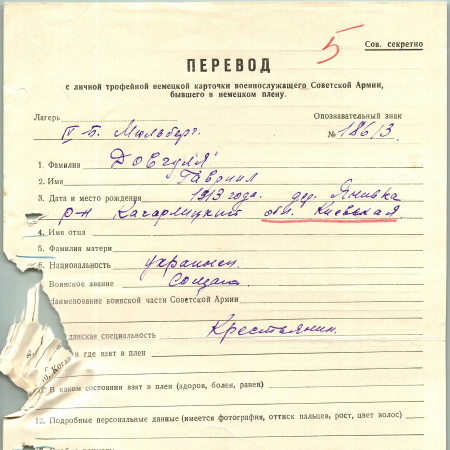 5
Сов. секретно
ПЕРЕВОД
с личной трофейной немецкой карточки военнослужащего Советской Армии,
бывшего в немецком плену.
Лагерь Опознавательный знак
IV-Б. Мюльберг. № 186/3
1. Фамилия Довгуля
2. Имя Гавриил
3. Дата и место рождения 1913 года. дер. Янивка
р-н Кагарлицкий обл. Киевская
4. Имя отца
5. Фамилия матери
6. Национальность украинец.
Воинское звание Солдат.
Наименование воинской части Советской Армии
данская специальность Крестьянин.
и где взят в плен
В каком состоянии взят в плен (здоров, болен, ранен)
12. Подробные персональные данные (имеется фотография, оттиск пальцев, рост, цвет волос)